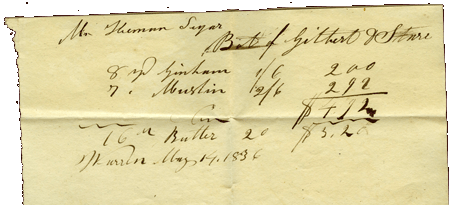 Mr Heman Segar
Bot of Gilbert &
8 yd Gingham 1/6 200
7 " Muslin 2/6 292
Cr $4.92
16 lb Butter 20 $3.20
May 14, 1836